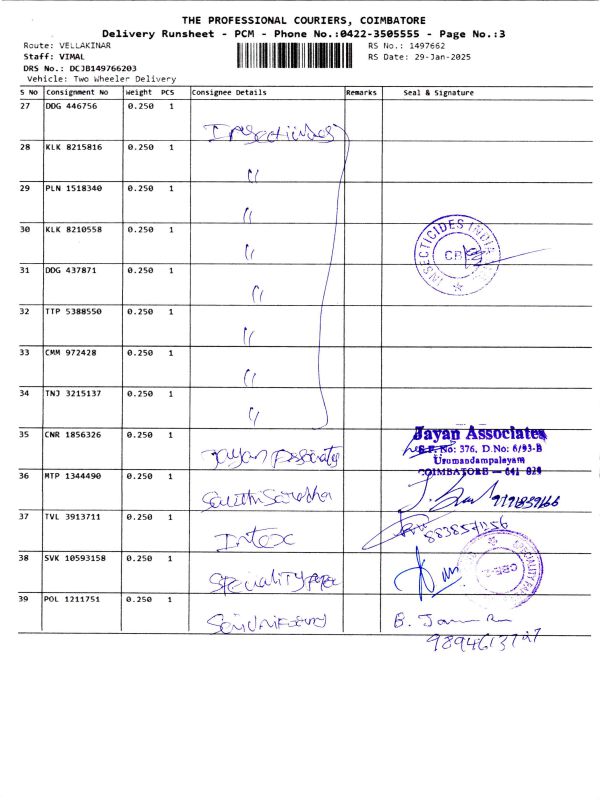 THE PROFESSIONAL COURIERS, COIMBATORE
Delivery Runsheet - PCM - Phone No.:0422-3505555 - Page No.:3
Route: VELLAKINAR
RS No.: 1497662
Staff: VIMAL
RS Date: 29-Jan-2025
DRS No.: DCJB149766203
Vehicle: Two Wheeler Delivery
S No Consignment No Weight PCS Consignee Details Remarks Seal & Signature
27 DDG 446756 0.250 1
Insecticides
28 KLK 8215816 0.250 1
"
29 PLN 1518340 0.250 1
"
30 KLK 8210558 0.250 1
"
INSECTICIDES INDIA
CBE
31 DDG 437871 0.250 1
"
32 TTP 5388550 0.250 1
"
33 CMM 972428 0.250 1
"
34 TNJ 3215137 0.250 1
"
35 CNR 1856326 0.250 1
Jayan Associates
S.F. No: 376, D.No: 6/93-B
Urumandampalayam
COIMBATORE - 641 029
Jayan
36 MTP 1344490 0.250 1
37 TVL 3913711 0.250 1
Intex
38 SVK 10593158 0.250 1
Speciality
CBE-2
39 POL 1211751 0.250 1
B.